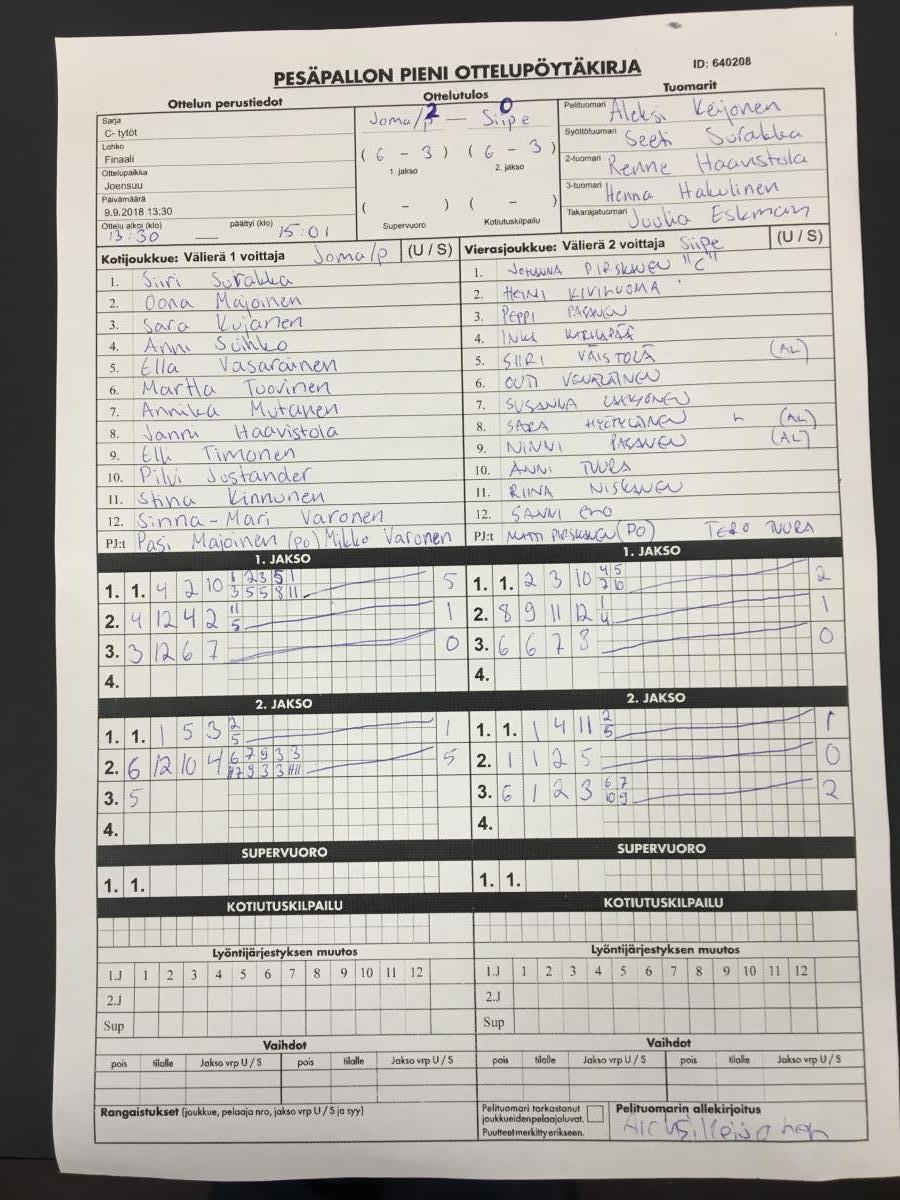 PESÄPALLON PIENI OTTELUPÖYTÄKIRJA ID: 640208
Ottelun perustiedot Ottelutulos Tuomarit
Sarja
C- tytöt
Lohko
Finaali
Ottelupaikka
Joensuu
Päivämäärä
9.9.2018 13:30
Ottelu alkoi (klo) päättyi (klo)
13:30 — 15:01
2 0
Joma/p — Siipe
( 6 - 3 ) ( 6 - 3 )
1. jakso 2. jakso
( - ) ( - )
Supervuoro Kotiutuskilpailu
Pelituomari Aleksi Keijonen
Syöttötuomari Seeti Surakka
2-tuomari Renne Haavistola
3-tuomari Henna Hakulinen
Takarajatuomari Juulia Eskman
Kotijoukkue: Välierä 1 voittaja Joma/p (U / S)
1. Siiri Surakka
2. Oona Majoinen
3. Sara Kujanen
4. Anni Suihko
5. Ella Vasarainen
6. Martta Tuovinen
7. Annika Mutanen
8. Janni Haavistola
9. Elli Timonen
10. Pilvi Justander
11. Stina Kinnunen
12. Sinna-Mari Varonen
PJ:t Pasi Majoinen (PO) Mikko Varonen
Vierasjoukkue: Välierä 2 voittaja Siipe (U / S)
1. PIRSKANEN "C"
2. HEINI KIVILUOMA
3. PEPPI PASANEN
4. INKA
5. SIIRI VÄISTÖLÄ (AL)
6. OUTI
7. SUSANNA
8. SARA (AL)
9. NINNI PASANEN (AL)
10. ANNI TUURA
11. RIINA NISKANEN
12. SANNI ERO
PJ:t MATTI PIRSKANEN (PO) TERO TUURA
1. JAKSO
1. 1. 4 2 10 1 2 3 5 1 5
3 5 5 8 11
2. 4 12 4 2 11 1
5
3. 3 12 6 7 0
4.
2. JAKSO
1. 1. 1 5 3 2 1
5
2. 6 12 10 4 6 7 9 3 3 5
3. 5
4.
SUPERVUORO
1. 1.
KOTIUTUSKILPAILU
1. JAKSO
1. 1. 2 3 10 4 5 2
7 10
2. 8 9 11 12 1 1
4
3. 6 6 7 8 0
4.
2. JAKSO
1. 1. 1 4 11 2 1
5
2. 1 1 2 5 0
3. 6 1 2 3 6 7 2
10 9
4.
SUPERVUORO
1. 1.
KOTIUTUSKILPAILU
Lyöntijärjestyksen muutos
1.J 1 2 3 4 5 6 7 8 9 10 11 12
2.J
Sup
Vaihdot
pois tilalle Jakso vrp U / S pois tilalle Jakso vrp U / S
Lyöntijärjestyksen muutos
1.J 1 2 3 4 5 6 7 8 9 10 11 12
2.J
Sup
Vaihdot
pois tilalle Jakso vrp U / S pois tilalle Jakso vrp U / S
Rangaistukset (joukkue, pelaaja nro, jakso vrp U / S ja syy)
Pelituomari tarkastanut
joukkueidenpelaajaluvat.
Puutteet merkitty erikseen.
Pelituomarin allekirjoitus